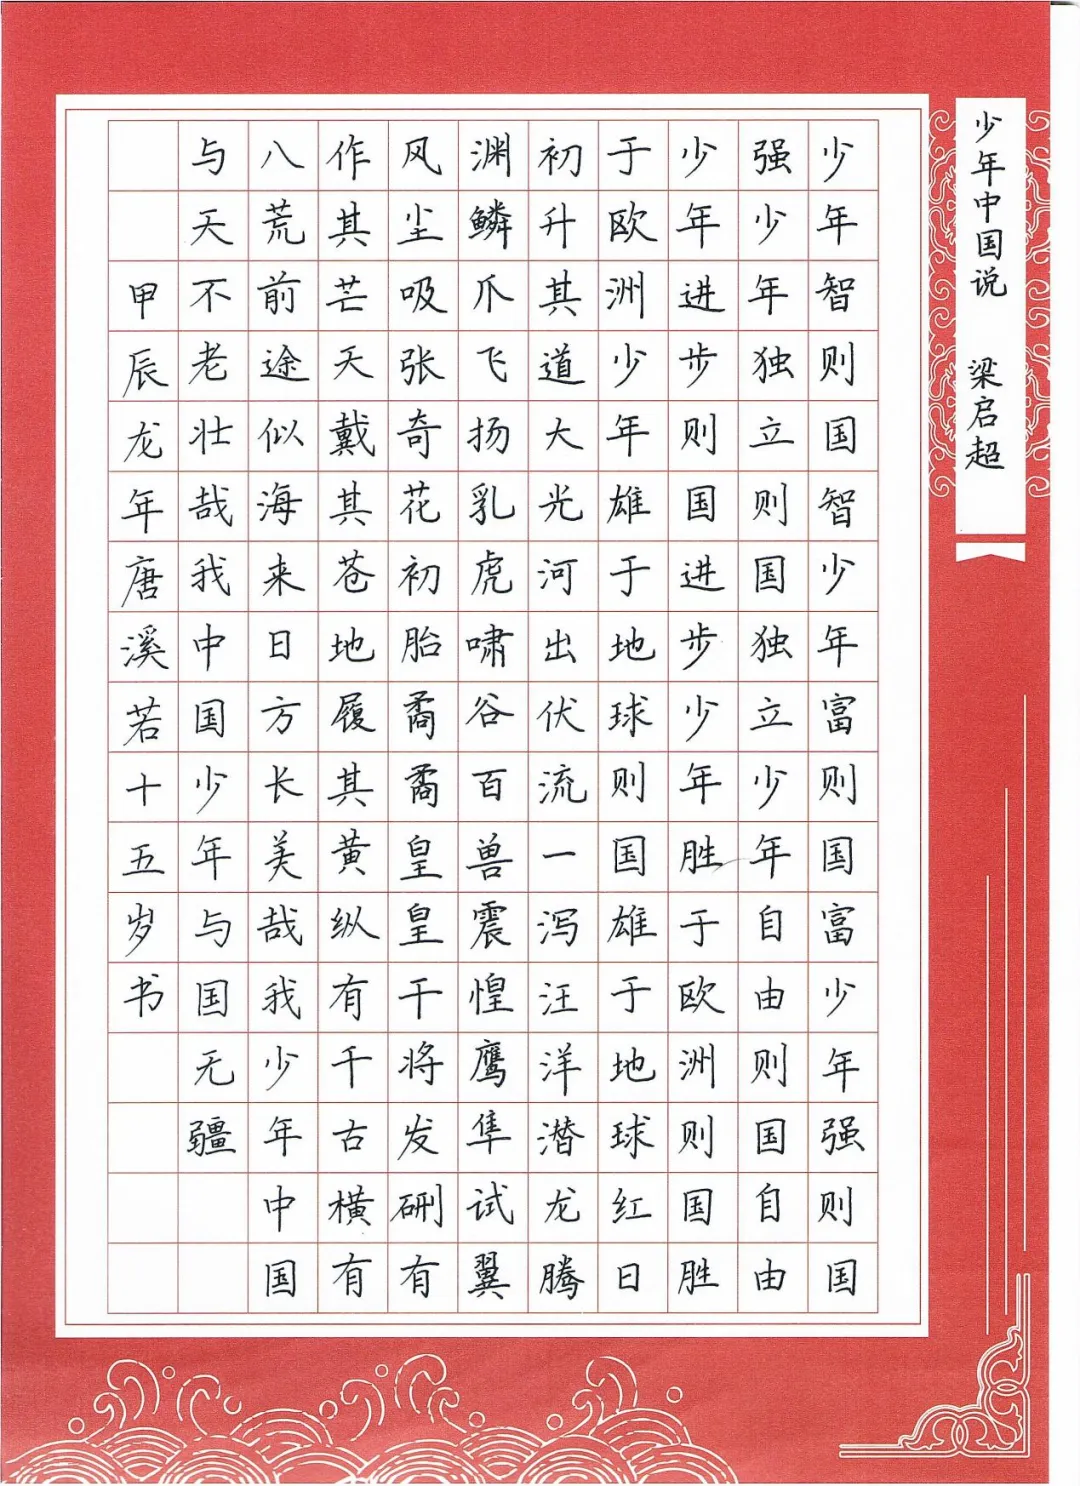 少年中国说 梁启超
少年智则国智少年富则国富少年强则国
强少年独立则国独立少年自由则国自由
少年进步则国进步少年胜于欧洲则国胜
于欧洲少年雄于地球则国雄于地球红日
初升其道大光河出伏流一泻汪洋潜龙腾
渊鳞爪飞扬乳虎啸谷百兽震惶鹰隼试翼
风尘吸张奇花初胎矞矞皇皇干将发硎有
作其芒天戴其苍地履其黄纵有千古横有
八荒前途似海来日方长美哉我少年中国
与天不老壮哉我中国少年与国无疆
甲辰龙年唐溪若十五岁书